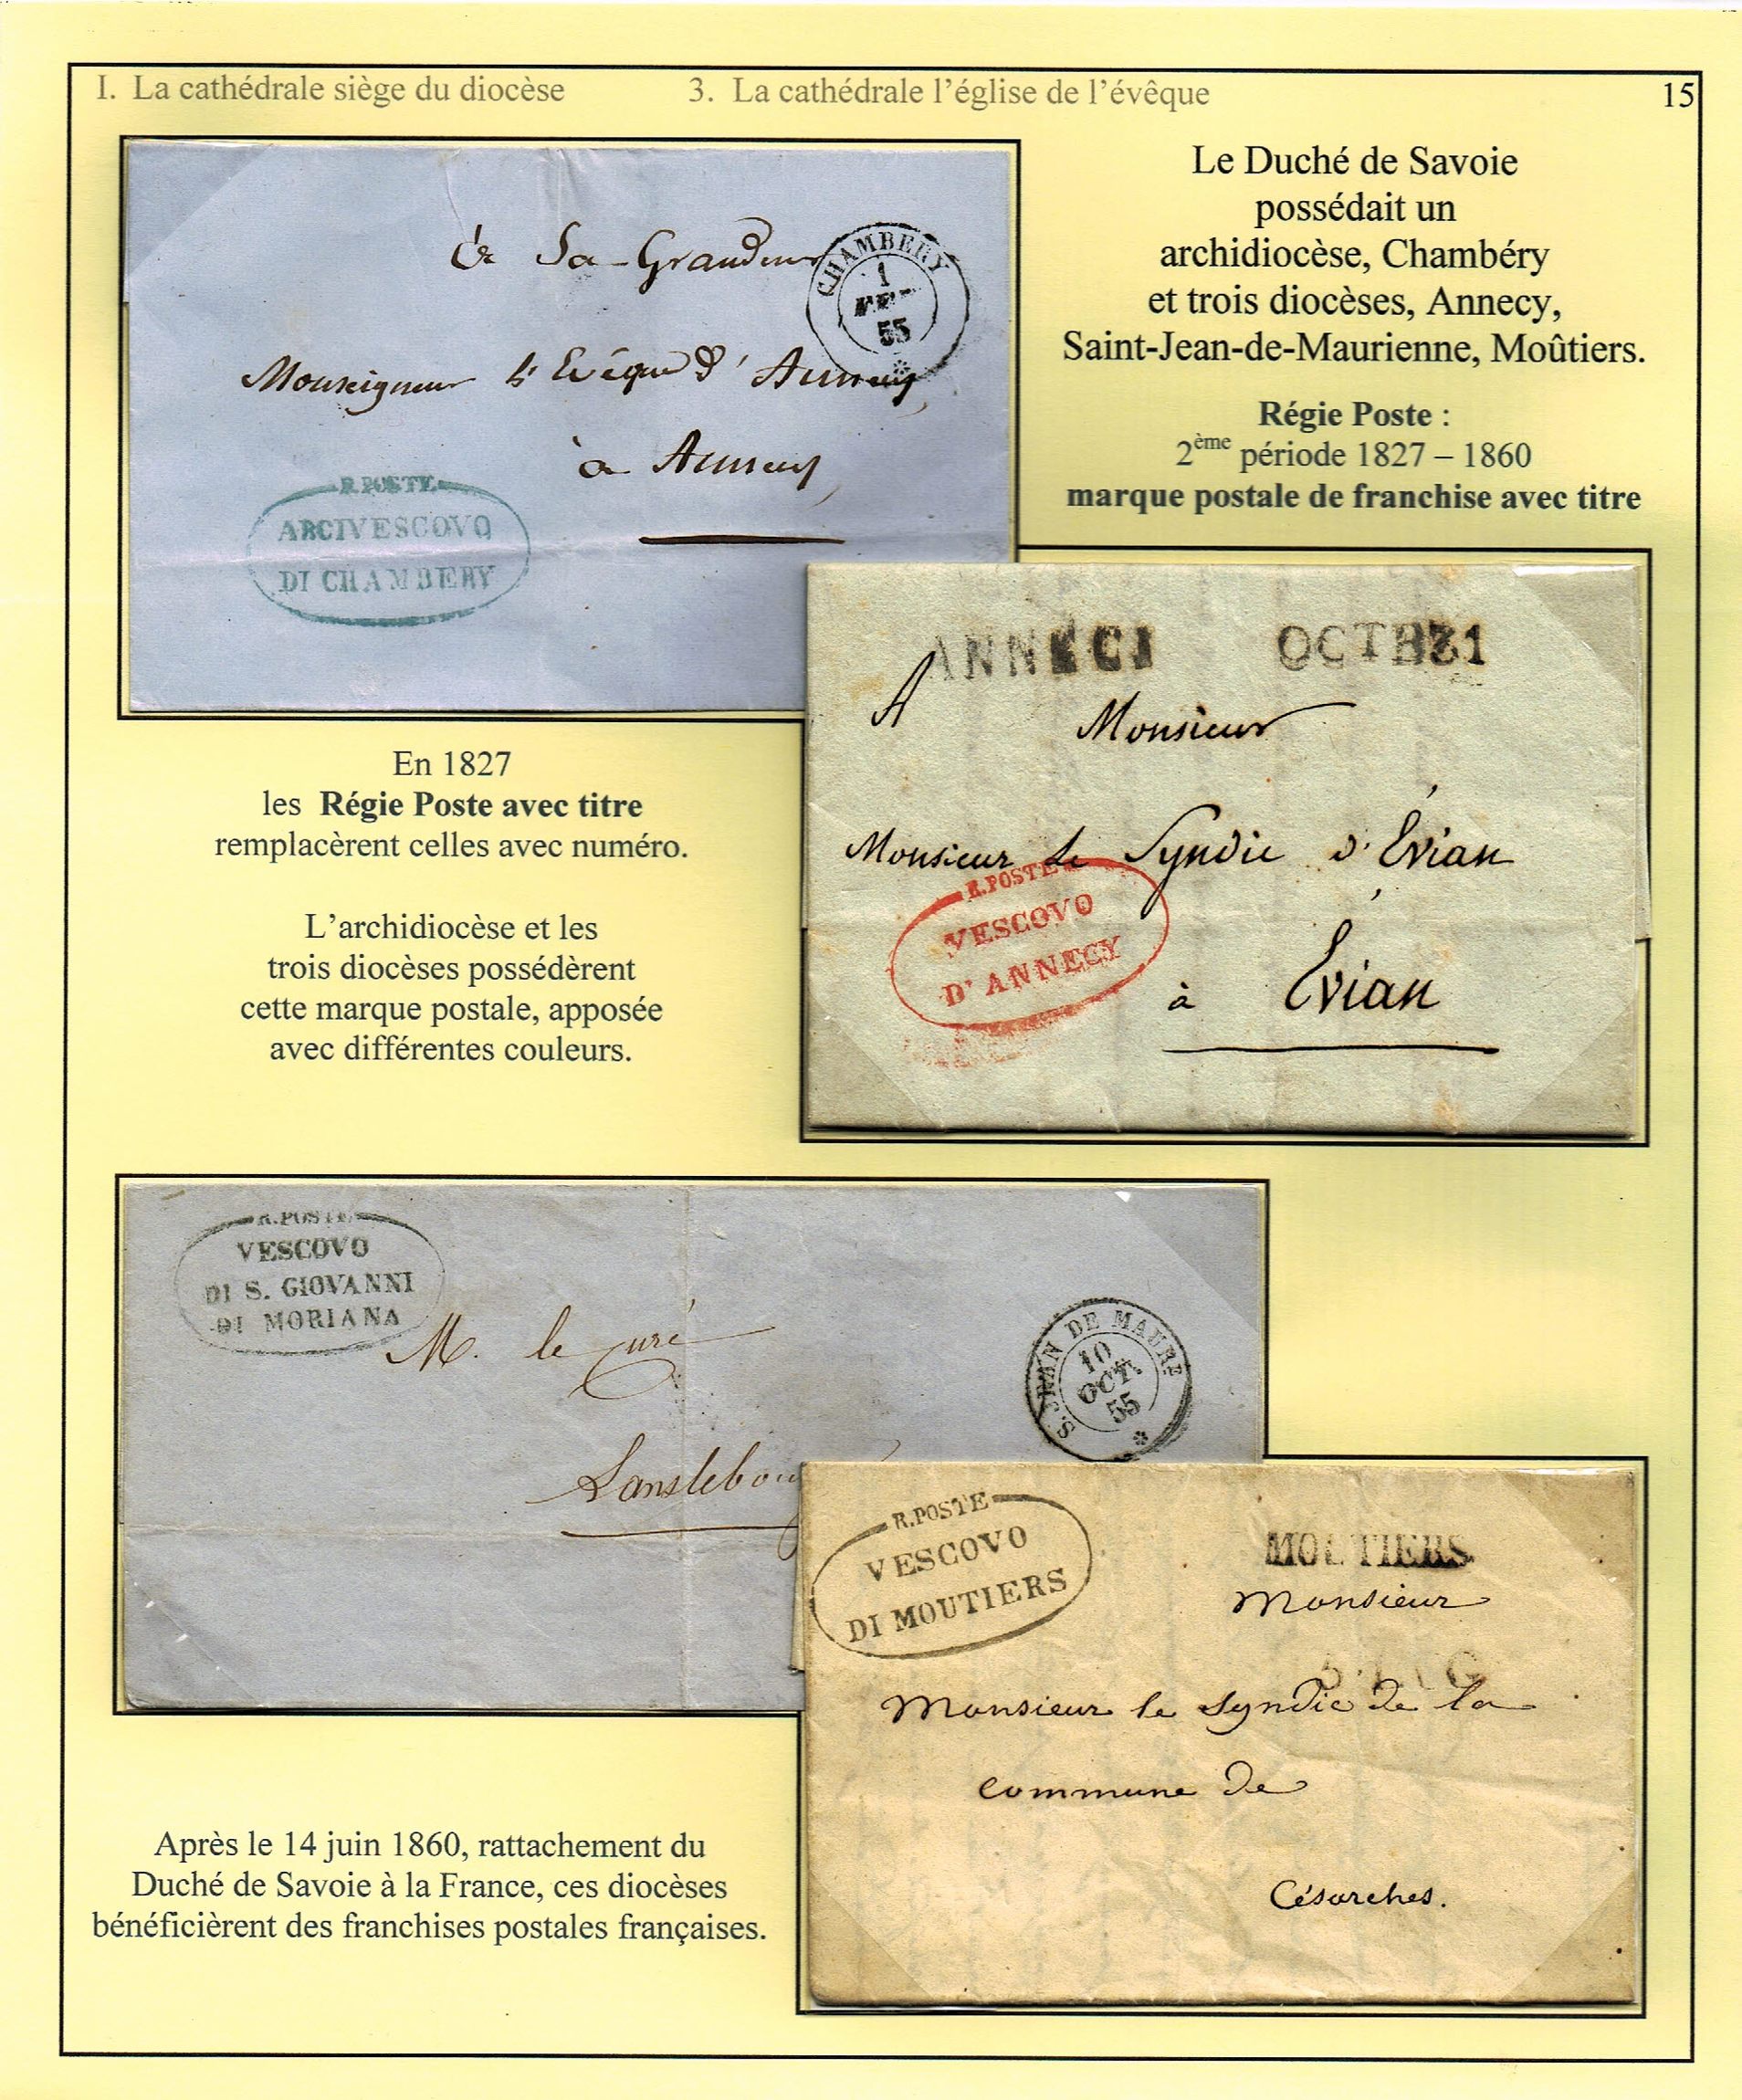 I. La cathédrale siège du diocèse
3. La cathédrale l'église de l'évêque
15
à Sa Grandeur
CHAMBERY
1
55
Monseigneur l'Evêque d'Annecy
à Annecy
R.POSTE
ARCIVESCOVO
DI CHAMBERY
Le Duché de Savoie
possédait un
archidiocèse, Chambéry
et trois diocèses, Annecy,
Saint-Jean-de-Maurienne, Moûtiers.
Régie Poste :
2ème période 1827 – 1860
marque postale de franchise avec titre
ANNECI
A
Monsieur
Monsieur Le Syndic d'Évian
R.POSTE
VESCOVO
D'ANNECY
à Évian
En 1827
les Régie Poste avec titre
remplacèrent celles avec numéro.
L'archidiocèse et les
trois diocèses possédèrent
cette marque postale, apposée
avec différentes couleurs.
R.POSTE
VESCOVO
DI S. GIOVANNI
DI MORIANA
M. le curé
S. JEAN DE MAURE
10
OCT.
55
R.POSTE
VESCOVO
DI MOUTIERS
MOUTIERS
Monsieur
Monsieur le Syndic de la
commune de
Césarches.
Après le 14 juin 1860, rattachement du
Duché de Savoie à la France, ces diocèses
bénéficièrent des franchises postales françaises.